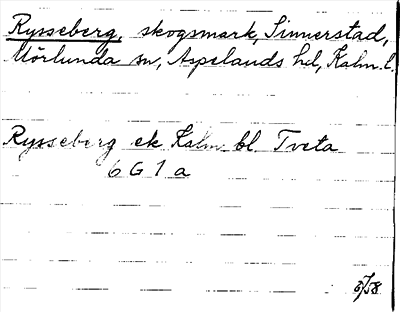 Rysseberg, skogsmark, Sinnerstad,
Mörlunda sn, Aspelands hd, Kalm. l.
Rysseberg ek Kalm. bl. Tveta
6 G 1 a
8/58